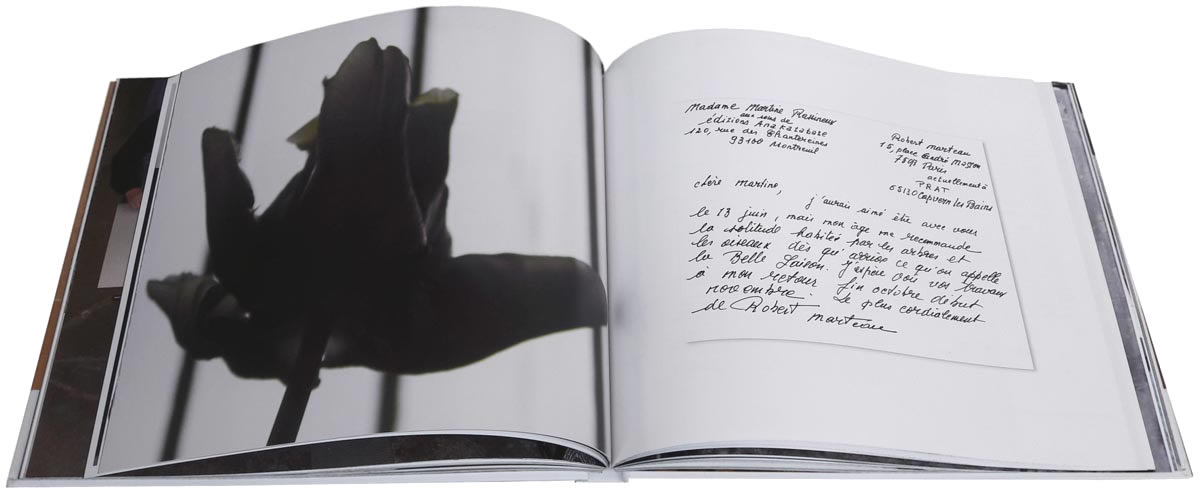 Madame Martine Rassineux
aux soins de
éditions Anakatabase
120, rue des Chantereines
93100 Montreuil
Robert Marteau
15, place André Masson
Paris
actuellement à
PRAT
65130 Capvern les Bains
chère Martine,
j'aurais aimé être avec vous
le 13 juin, mais mon âge me recommande
la solitude habitée par les arbres et
les oiseaux dès qu'arrive ce qu'on appelle
la Belle Saison. J'espère voir vos travaux
à mon retour fin octobre début
novembre. Le plus cordialement
de Robert Marteau